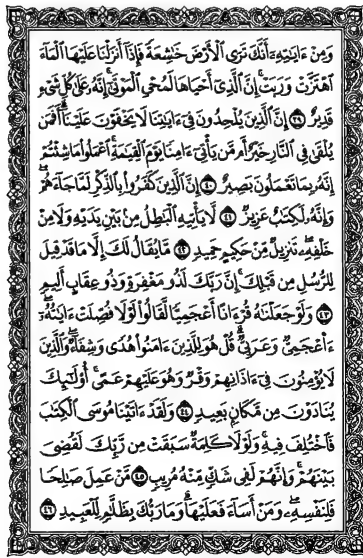 وَمِنْ ءَايَٰتِهِۦٓ أَنَّكَ تَرَى ٱلْأَرْضَ خَٰشِعَةً فَإِذَآ أَنزَلْنَا عَلَيْهَا ٱلْمَآءَ
ٱهْتَزَّتْ وَرَبَتْ ۚ إِنَّ ٱلَّذِىٓ أَحْيَاهَا لَمُحْىِ ٱلْمَوْتَىٰٓ ۚ إِنَّهُۥ عَلَىٰ كُلِّ شَىْءٍ
قَدِيرٌ ٣٩ إِنَّ ٱلَّذِينَ يُلْحِدُونَ فِىٓ ءَايَٰتِنَا لَا يَخْفَوْنَ عَلَيْنَآ ۗ أَفَمَن
يُلْقَىٰ فِى ٱلنَّارِ خَيْرٌ أَم مَّن يَأْتِىٓ ءَامِنًا يَوْمَ ٱلْقِيَٰمَةِ ۚ ٱعْمَلُوا۟ مَا شِئْتُمْ ۖ
إِنَّهُۥ بِمَا تَعْمَلُونَ بَصِيرٌ ٤٠ إِنَّ ٱلَّذِينَ كَفَرُوا۟ بِٱلذِّكْرِ لَمَّا جَآءَهُمْ ۖ
وَإِنَّهُۥ لَكِتَٰبٌ عَزِيزٌ ٤١ لَّا يَأْتِيهِ ٱلْبَٰطِلُ مِنۢ بَيْنِ يَدَيْهِ وَلَا مِنْ
خَلْفِهِۦ ۖ تَنزِيلٌ مِّنْ حَكِيمٍ حَمِيدٍ ٤٢ مَّا يُقَالُ لَكَ إِلَّا مَا قَدْ قِيلَ
لِلرُّسُلِ مِن قَبْلِكَ ۚ إِنَّ رَبَّكَ لَذُو مَغْفِرَةٍ وَذُو عِقَابٍ أَلِيمٍ
٤٣ وَلَوْ جَعَلْنَٰهُ قُرْءَانًا أَعْجَمِيًّا لَّقَالُوا۟ لَوْلَا فُصِّلَتْ ءَايَٰتُهُۥٓ ۖ
ءَا۬عْجَمِىٌّ وَعَرَبِىٌّ ۗ قُلْ هُوَ لِلَّذِينَ ءَامَنُوا۟ هُدًى وَشِفَآءٌ ۖ وَٱلَّذِينَ
لَا يُؤْمِنُونَ فِىٓ ءَاذَانِهِمْ وَقْرٌ وَهُوَ عَلَيْهِمْ عَمًى ۚ أُو۟لَٰٓئِكَ
يُنَادَوْنَ مِن مَّكَانٍۭ بَعِيدٍ ٤٤ وَلَقَدْ ءَاتَيْنَا مُوسَى ٱلْكِتَٰبَ
فَٱخْتُلِفَ فِيهِ ۗ وَلَوْلَا كَلِمَةٌ سَبَقَتْ مِن رَّبِّكَ لَقُضِىَ
بَيْنَهُمْ ۚ وَإِنَّهُمْ لَفِى شَكٍّ مِّنْهُ مُرِيبٍ ٤٥ مَّنْ عَمِلَ صَٰلِحًا
فَلِنَفْسِهِۦ ۖ وَمَنْ أَسَآءَ فَعَلَيْهَا ۗ وَمَا رَبُّكَ بِظَلَّٰمٍ لِّلْعَبِيدِ ٤٦